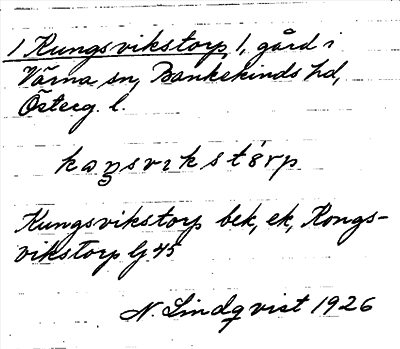 1 Kungsvikstorp 1, gård i
Värna sn, Bankekinds hd,
Österg. l.
kaŋsvikstórp
Kungsvikstorp bek, ek, Kongs-
vikstorp lj 45
N. Lindqvist 1926